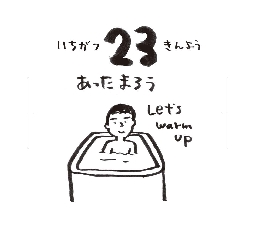 いちがつ 23 きんよう
あったまろう
Let's
warm
up